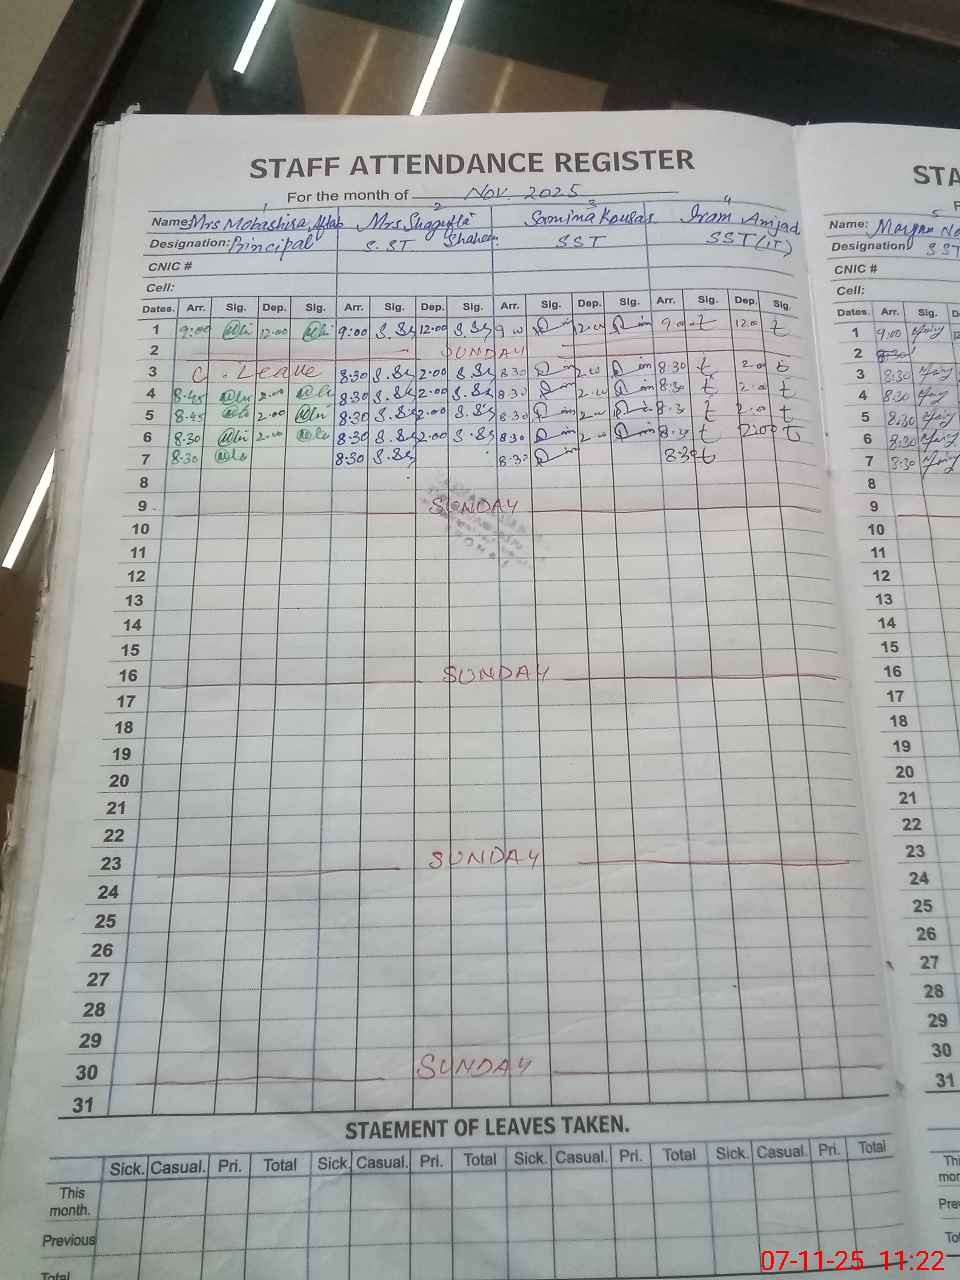 STAFF ATTENDANCE REGISTER
For the month of Nov. 2025
1 2 3 4
Name: Mrs Mobashira Aftab Mrs Shagufta Shaheen Samina Kousar Iram Amjad
Designation: Principal S.ST SST SST (IT)
CNIC #
Cell:
Dates. Arr. Sig. Dep. Sig. Arr. Sig. Dep. Sig. Arr. Sig. Dep. Sig. Arr. Sig. Dep. Sig.
1 9:00 12.00 9:00 12.00 9.00 12.00
2 SUNDAY
3 C. Leave 8.30 2.00 8.30 2.00 8.30 2.00
4 8.45 2.00 8.30 2.00 8.30 2.00 8.30 2.00
5 8.45 2.00 8.30 2.00 8.30 2.00 8.30 2.00
6 8.30 2.00 8.30 2.00 8.30 2.00 8.30 2.00
7 8.30 8.30 8.30 8.30
8
9 SUNDAY
10
11
12
13
14
15
16 SUNDAY
17
18
19
20
21
22
23 SUNDAY
24
25
26
27
28
29
30 SUNDAY
31
STAEMENT OF LEAVES TAKEN.
Sick. Casual. Pri. Total Sick. Casual. Pri. Total Sick. Casual. Pri. Total Sick. Casual. Pri. Total
This month.
Previous
Total
STA
5
Name:
Designation: SST
CNIC #
Cell:
Dates. Arr. Sig.
1 9:00
2
3 8:30
4 8:30
5 8:30
6 8:30
7 8:30
8
9
10
11
12
13
14
15
16
17
18
19
20
21
22
23
24
25
26
27
28
29
30
31
07-11-25 11:22